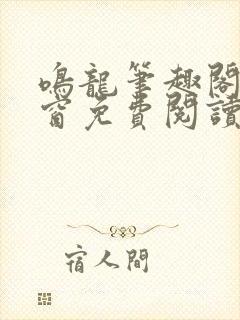 鳴龍筆趣閣
窗免費閱讀
宿人間